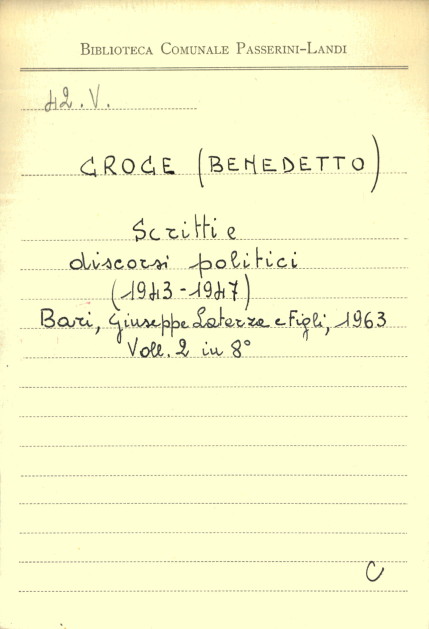 BIBLIOTECA COMUNALE PASSERINI-LANDI
42.V.
CROCE (BENEDETTO)
Scritti e
discorsi politici
(1943-1947)
Bari, Giuseppe Laterza e Figli, 1963
Voll. 2 in 8°
C